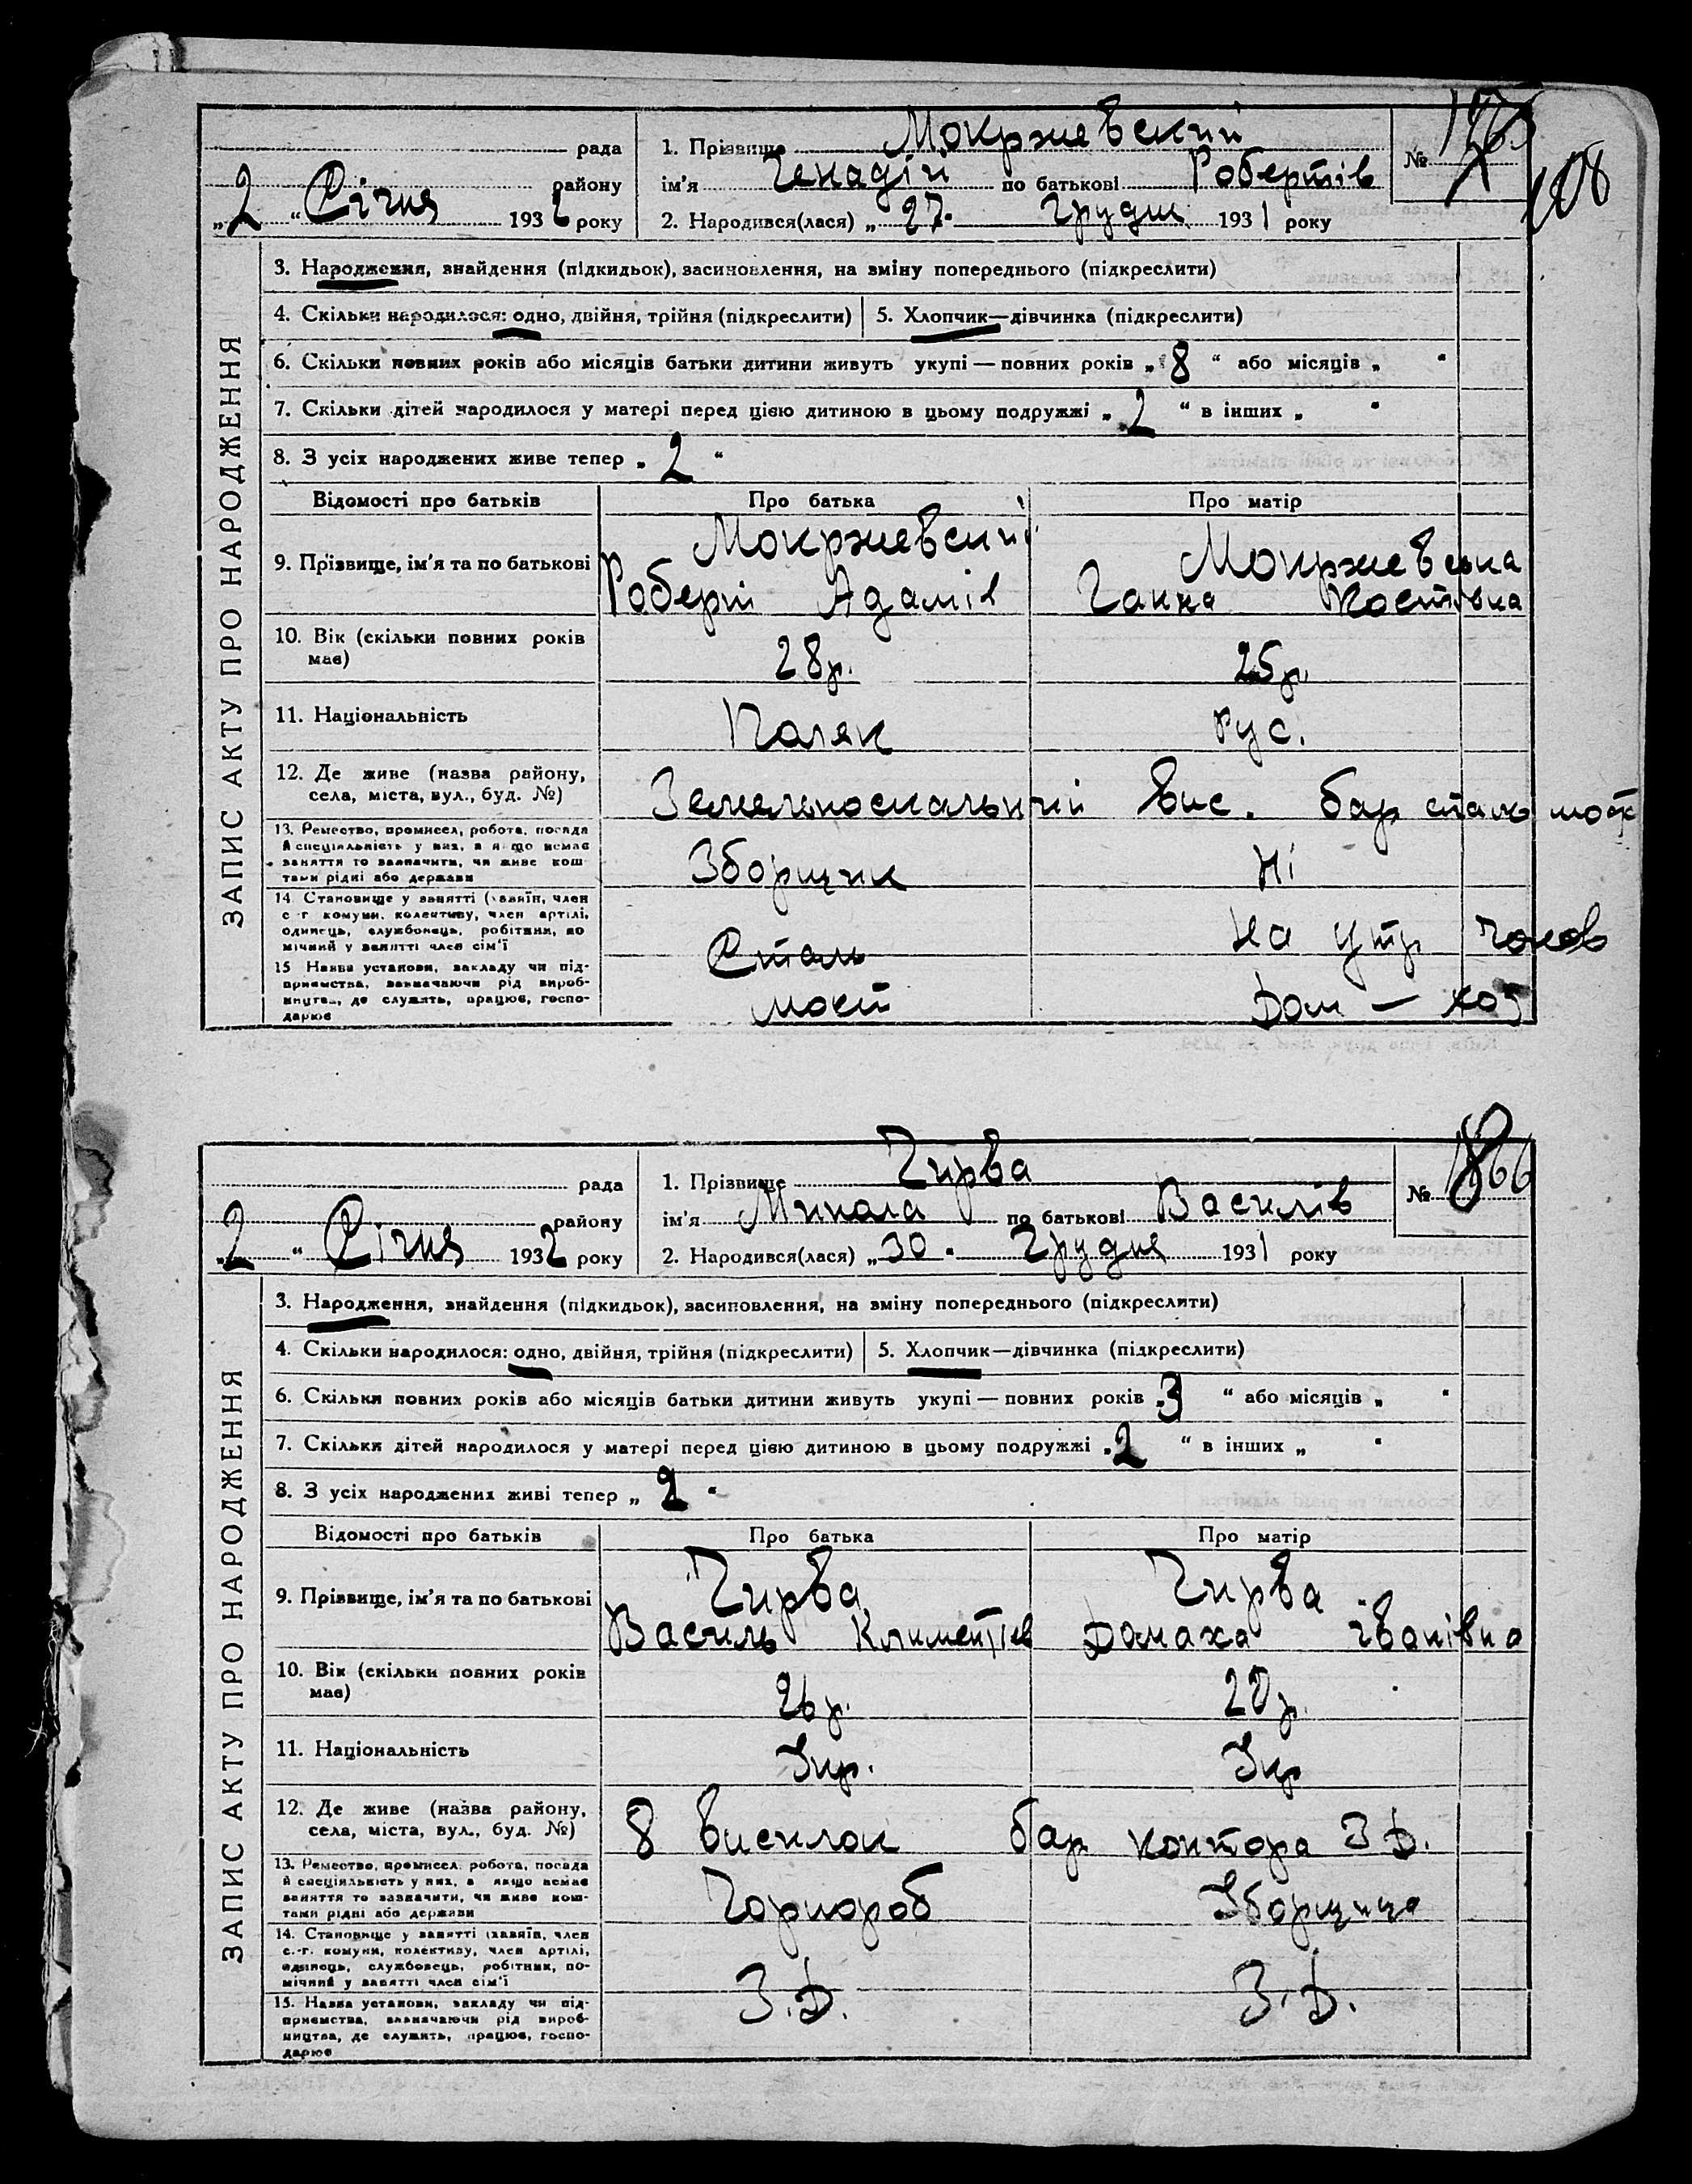 рада
району
„ 2 “ Січня 1932 року
1. Прізвище Мокржевский
ім'я Генадій по батькові Робертів
2. Народився(лася) „ 27. Грудня 1931 року
№
108
ЗАПИС АКТУ ПРО НАРОДЖЕННЯ
3. Народження, знайдення (підкидьок), засиновлення, на зміну попереднього (підкреслити)
4. Скільки народилося: одно, двійня, трійня (підкреслити) 5. Хлопчик—дівчинка (підкреслити)
6. Скільки повних років або місяців батьки дитини живуть укупі — повних років „ 8 “ або місяців „ “
7. Скільки дітей народилося у матері перед цією дитиною в цьому подружжі „ 2 “ в інших „ “
8. З усіх народжених живе тепер „ 2 “
Відомості про батьків Про батька Про матір
9. Прізвище, ім'я та по батькові
Мокржевский
Роберт Адамів
Мокржевська
Ганна Костівна
10. Вік (скільки повних років
має)
28р. 25р.
11. Національність Поляк Рус.
12. Де живе (назва району,
села, міста, вул., буд. №)
вис. бар сталь мост
13. Ремество, промисел, робота, посада
й спеціяльність у них, а якщо немає
заняття то зазначити, чи живе кош-
тами рідні або держави
Зборщик Ні
14. Становище у занятті (хазяїн, член
с.-г. комуни, колективу, член артілі,
одинець, службовець, робітник, по-
мічний у занятті член сім'ї
На утр. чолов
15. Назва установи, закладу чи під-
приємства, зазначаючи рід вироб-
ництва, де служить, працює, госпо-
дарює
Сталь
мост
Дом — хоз
рада
району
„ 2 “ Січня 1932 року
1. Прізвище Чирва
ім'я Микола по батькові Василів
2. Народився(лася) „ 30. Грудня 1931 року
№
ЗАПИС АКТУ ПРО НАРОДЖЕННЯ
3. Народження, знайдення (підкидьок), засиновлення, на зміну попереднього (підкреслити)
4. Скільки народилося: одно, двійня, трійня (підкреслити) 5. Хлопчик—дівчинка (підкреслити)
6. Скільки повних років або місяців батьки дитини живуть укупі — повних років „ 3 “ або місяців „ “
7. Скільки дітей народилося у матері перед цією дитиною в цьому подружжі „ 2 “ в інших „ “
8. З усіх народжених живі тепер „ 2 “
Відомості про батьків Про батька Про матір
9. Прізвище, ім'я та по батькові
Чирва
Василь Климентіев
Чирва
Домаха Іванівна
10. Вік (скільки повних років
має)
26р. 20р.
11. Національність Укр. Укр
12. Де живе (назва району,
села, міста, вул., буд. №)
8 виселок бар контора З Д.
13. Ремество, промисел, робота, посада
й спеціяльність у них, а якщо немає
заняття то зазначити, чи живе кош-
тами рідні або держави
Чорнороб Зборщица
14. Становище у занятті (хазяїн, член
с.-г. комуни, колективу, член артілі,
одинець, службовець, робітник, по-
мічний у занятті член сім'ї
З.Д. З.Д.
15. Назва установи, закладу чи під-
приємства, зазначаючи рід вироб-
ництва, де служить, працює, госпо-
дарює